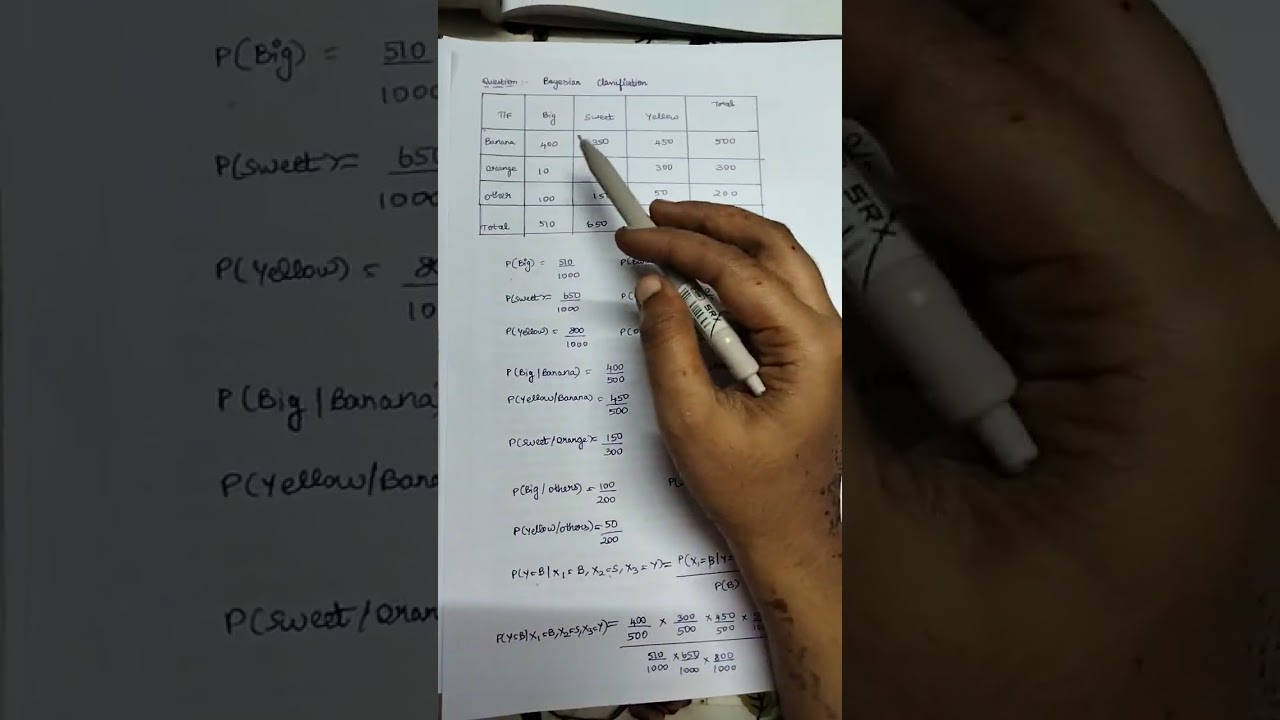 Question :- Bayesian Clanification
T/F Big Sweet Yellow Total
Banana 400 350 450 500
Orange 10 300 300
Other 100 150 50 200
Total 510 650
P(Big) = 510/1000
P(Sweet)= 650/1000
P(Yellow)= 800/1000
P(Big|Banana) = 400/500
P(Yellow/Banana) = 450/500
P(Sweet/Orange)= 150/300
P(Big/others) = 100/200
P(Yellow/others)= 50/200
P(Y=B|X1=B, X2=S, X3=Y)= P(X1=B|Y=
P(B)
P(Y=B|X1=B,X2=S,X3=Y)= 400/500 × 300/500 × 450/500 ×
510/1000 × 650/1000 × 800/1000
SRX